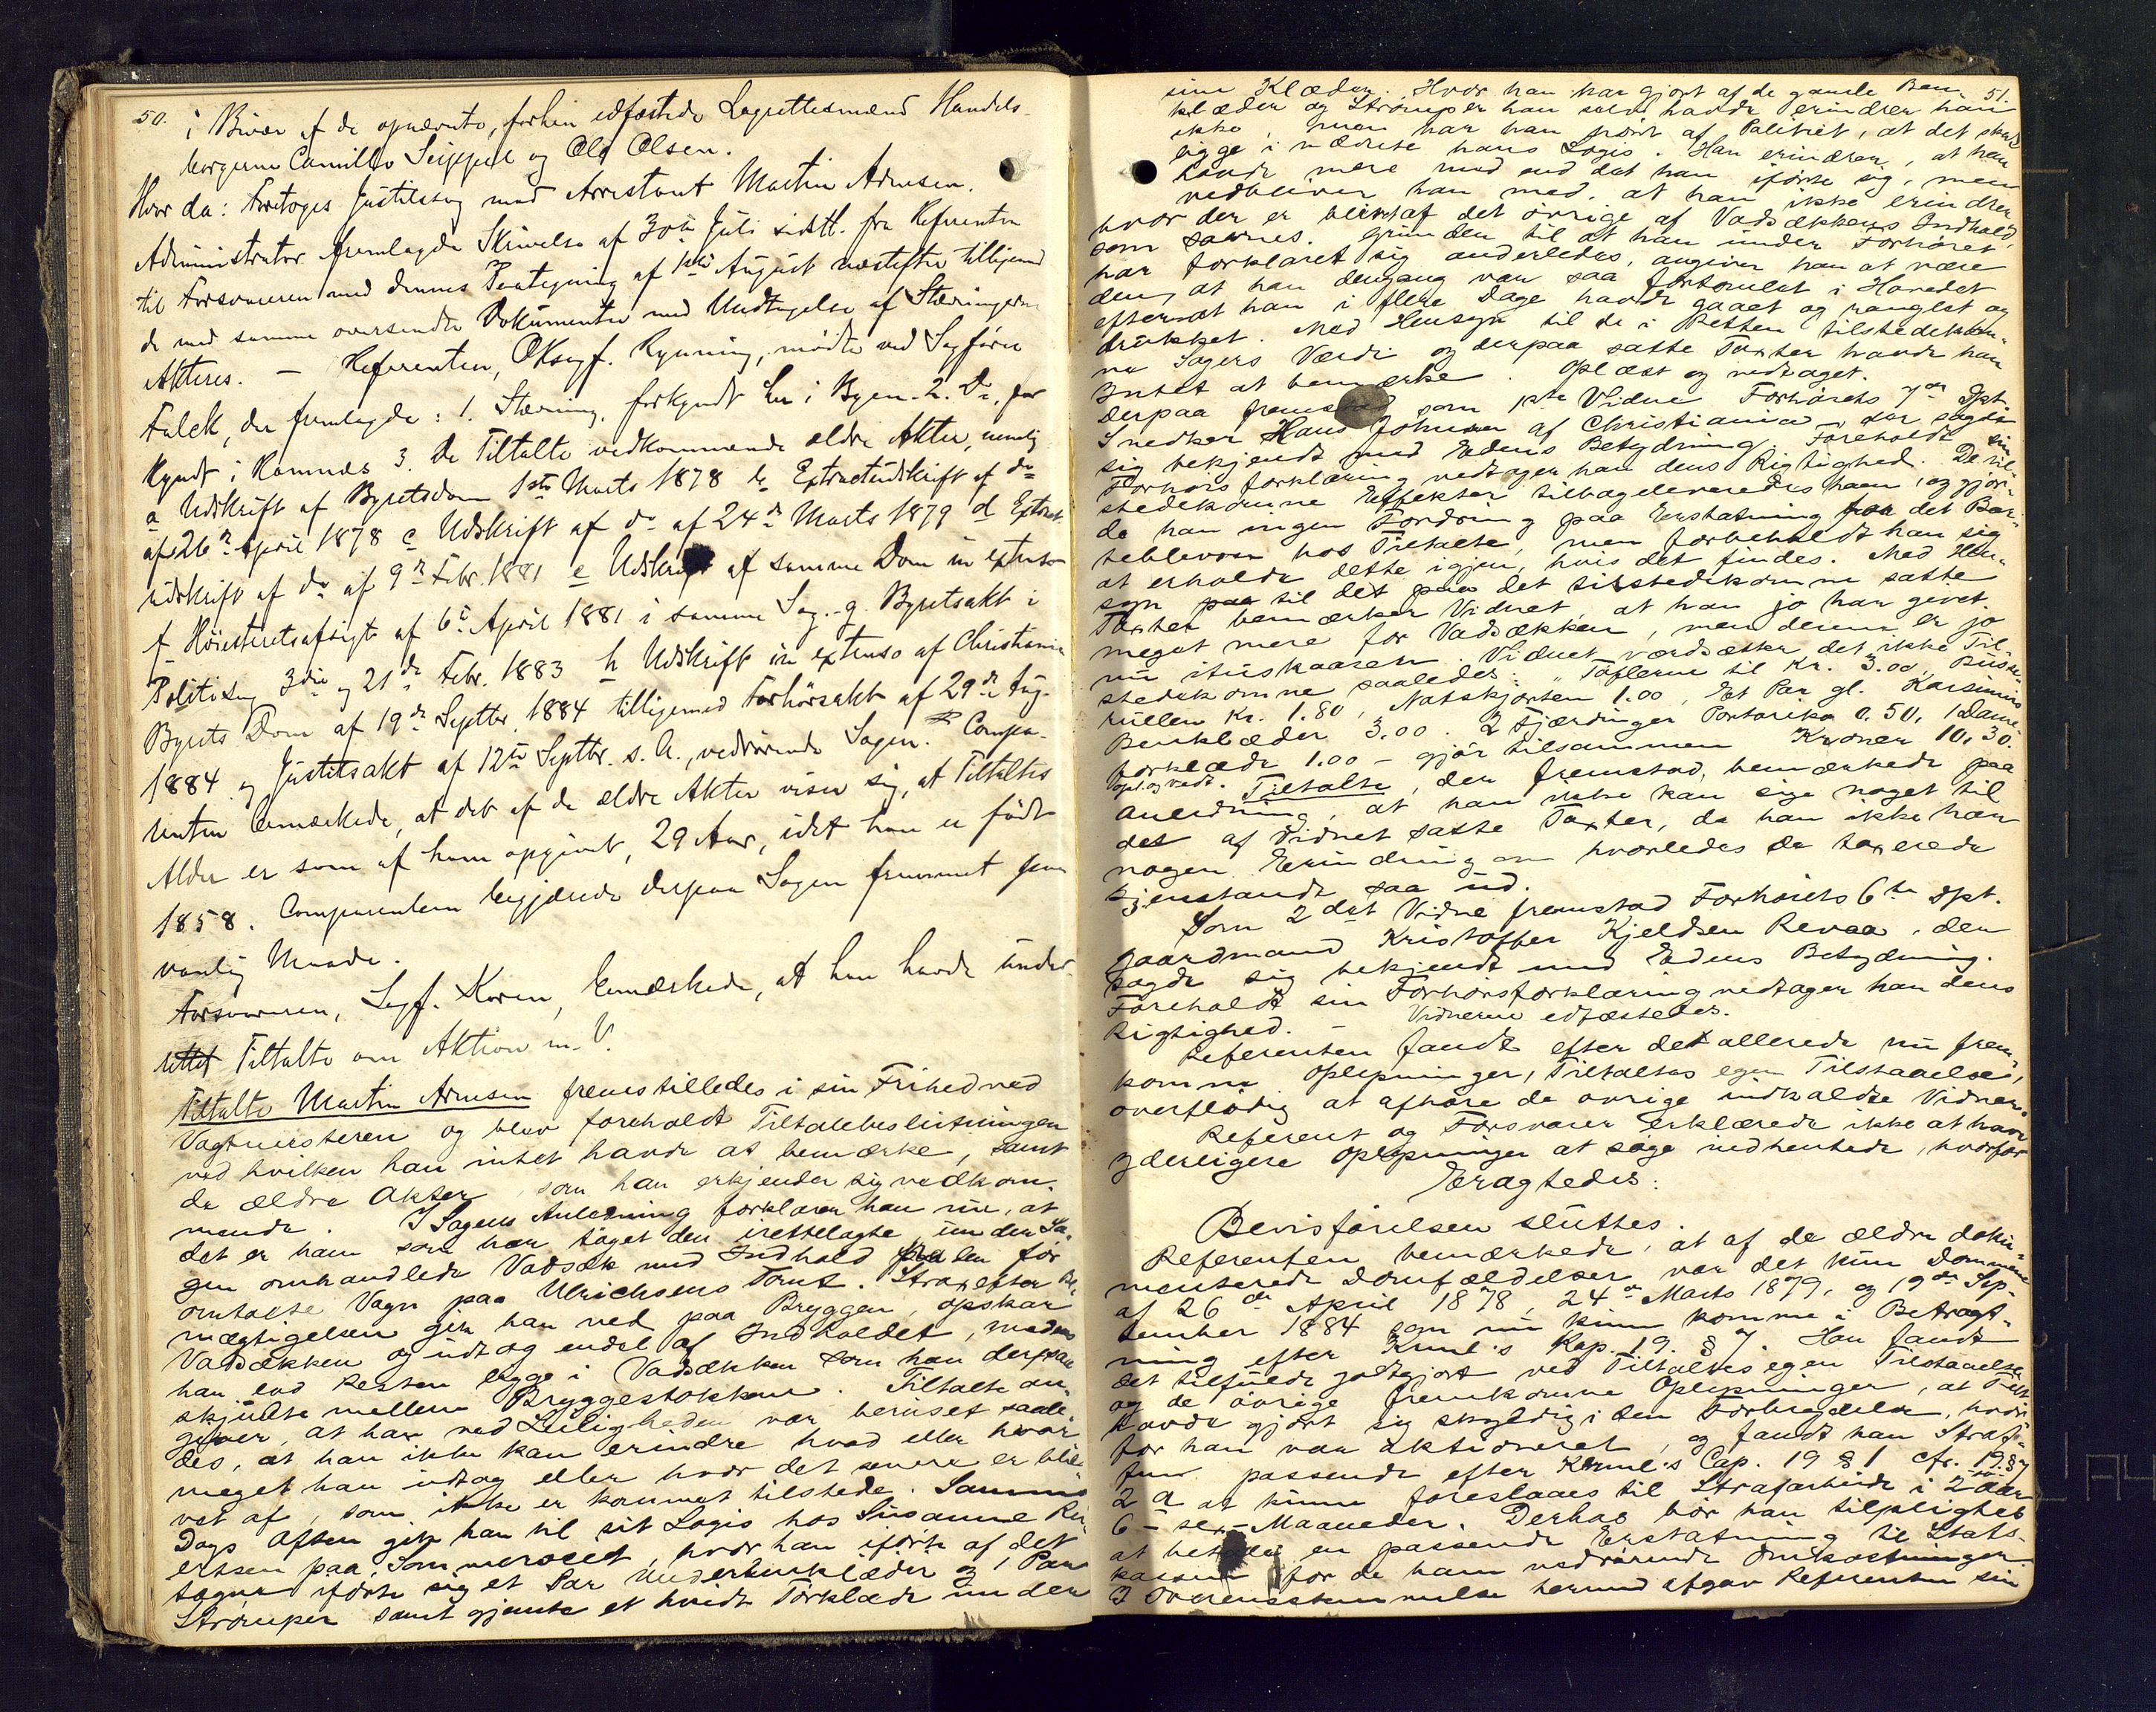 50.
i Bivær af de opnævnte, forhen edfæstede Lagrettesmænd Handels-
borgerne Camillo Seippel og Ole Olsen.
Hvor da: Foretoges Justitssag mod Arrestant Martin Arnesen.
Administrator fremlagde Skrivelse af 30te Juli sidstl. fra Referenten
til Forsvareren med dennes Paategning af 1ste August næstefter tilligemed
de med samme oversendte Dokumenter med Undtagelse af Stævningerne
Akteres. – Referenten, OKsagf. Rynning, mødte ved Sagfører
Falck, der fremlagde: 1. Stævning, forkyndt her i Byen. 2. Do, for
kyndt i Hamnæs 3. De Tiltalte vedkommende ældre Akter, nemlig
a Udskrift af Byretsdom 1ste Marts 1878 b Extractudskrift af do
af 26de April 1878 c Udskrift af do af 24de Marts 1879 d Extract
udskrift af do af 9de Febr. 1881 e Udskrift af samme Dom in extenso
f Høiesteretsafsigt af 6te April 1881 i samme Sag. g. Byretsakt i
Politisag 3die og 21de Febr. 1883 h Udskrift in extenso af Christiania
Byrets Dom af 19de Septbr. 1884 tilligemed Forhørsakt af 29de Aug.
1884 og Justitsakt af 12te Septbr. s. A., vedrørende Sagen. Compa-
renten bemærkede, at det af de ældre Akter viser sig, at Tiltaltes
Alder er som af ham opgivet, 29 Aar, idet han er født
1858. Comparenten begjærede derpaa Sagen fremmet paa
vanlig Maade.
Forsvareren, Sagf. Koren, bemærkede, at han havde under
rettet Tiltalte om Aktion m. V.
Tiltalte Martin Arnesen fremstilledes i sin Frihed ved
Vagtmesteren og blev foreholdt Tiltalebeslutningen
ved hvilken han intet havde at bemærke, samt
de ældre Akter, som han erkjender sig vedkom-
mende. I Sagens Anledning forklarer han nu, at
det er ham som har taget den irettelagte, under Sa-
gen omhandlede Vadsæk med Indhold fra den før
omtalte Vogn paa Ulrichsens Tomt. Strax efter Be-
mægtigelsen gik han ned paa Bryggen, opskar
Vadsækken og udtog endel af Indholdet, medens
han lod Resten ligge i Vadsækken som han derpaa
skjulte mellem Bryggestokkene. Tiltalte an-
giver, at han ved Leiligheden var beruset saale-
des, at han ikke kan erindre hvad eller hvor
meget han udtog eller hvor det senere er ble-
vet af, som ikke er kommet tilstede. Samme
Dags Aften gik han til sit Logis hos Susanne
ertsen paa Sommeroset, hvor han iførte af det
tagne iførte sig et Par Underbenklæder og 1 Par
Strømper samt gjemte et hvidt Tørklæde under
51.
sine Klæder. Hvor han har gjort af de gamle Ben-
klæder og Strømper han selv havde erindrer han
ikke, men har han hørt af Politiet, at det skulde
ligge i nærheden hans Logis. Han erindrer, at han
havde mere med end det han iførte sig, men
vedbliver han med, at han ikke erindrer
hvor der er blevet af det øvrige af Vadsækkens Indhold,
som savnes. Grunden til at han under Forhøret
har forklaret sig anderledes, angiver han at være
den, at han dengang var saa fortumlet i Hovedet
efterat han i flere Dage havde gaaet og ranglet og
drukket. Med Hensyn til de i Retten tilstedekom-
ne Sagers Værdi og derpaa satte Taxter havde han
Intet at bemærke. Oplæst og vedtaget.
Derpaa fremstod som 1ste Vidne Forhørets 7de Dpt.
Snedker Hans Johnsen af Christiania, der sagde
sig bekjendt med Edens Betydning. Foreholdt sin
Forhørsforklaring vedtager han dens Rigtighed. De til-
stedekomne Effekter tilbageleveredes ham, og gjor-
de han ingen Fordring paa Erstatning for det Bor-
teblevne hos Tiltalte, men forbeholdt han sig
at erholde dette igjen, hvis det findes. Med Hen-
syn paa til det paa det tilstedekomne satte
Taxter bemærker Vidnet, at han jo har givet
meget mere for Vadsækken, men denne er jo
nu ituskaaren. Vidnet værdsætter det ikke Til-
stedekomne saaledes: Tøflerne til Kr. 3.00, Busse-
rullen Kr. 1.80, Natskjorten 1.00, Et Par gl. Kasimirs
Benklæder 3,00. 2 Fjærdinger Portoriko 0.50, 1 Dame
tørklæde 1.00 – gjør tilsammen Kroner 10,30.
Opl. og vedt. Tiltalte, der fremstod, bemærkede paa
Anledning, at han ikke kan sige noget til
det af Vidnet satte Taxter, da han ikke har
nogen Erindring om hvorledes de taxerede
Gjenstande saa ud.
Som 2det Vidne fremstod Forhørets 6te Dpt.
Gaardmand Kristoffer Kjeldsen Revaa, der
sagde sig bekjendt med Edens Betydning.
Foreholdt sin Forhørsforklaring vedtager han dens
Rigtighed. – Vidnerne edfæstedes.
Referenten fandt efter det allerede nu frem-
komne Oplysninger, Tiltaltes egen Tilstaaelse,
overflødig at afhøre de øvrige indkaldte Vidner.
Referent og Forsvarer erklærede ikke at have
yderligere Oplysninger at søge indhentede, hvorfor
Eragtedes:
Bevisførelsen sluttes.
Referenten bemærkede, at af de ældre doku-
menterede Domfældelser var det kun Dommene
af 26de April 1878, 24de Marts 1879, og 19de Sep-
tember 1884 som nu kunne komme i Betragt-
ning efter Krml.s Kap. 19. § 7. Han fandt
det tilfulde godtgjort ved Tiltaltes egen Tilstaaelse
og de øvrige fremkomne Oplysninger, at Tilt.
havde gjort sig skyldig i den Forbrydelse, hvor-
for han var aktioneret, og fandt han Straf-
fen passende efter Krml.s Cap. 19 § 1 cfr. 19 § 7
2 a at kunne foreslaaes til Strafarbeide i 2 to Aar
6 – sex – Maaneder. Derhos bør han tilpligtes
at betale en passende Erstatning til Stats-
kassen for de ham vedrørende Omkostninger.
I Overensstemmelse hermed afgav Referenten sin